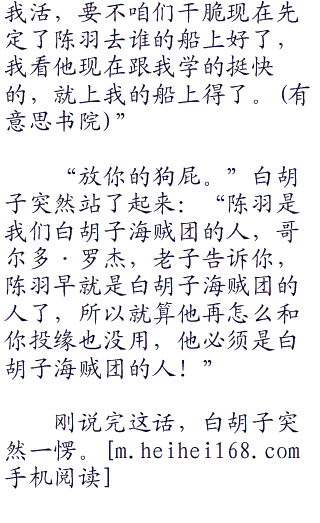 我活，要不咱们干脆现在先
定了陈羽去谁的船上好了，
我看他现在跟我学的挺快
的，就上我的船上得了。(有
意思书院)”
“放你的狗屁。”白胡
子突然站了起来：“陈羽是
我们白胡子海贼团的人，哥
尔多·罗杰，老子告诉你，
陈羽早就是白胡子海贼团的
人了，所以就算他再怎么和
你投缘也没用，他必须是白
胡子海贼团的人！”
刚说完这话，白胡子突
然一愣。[m.heihei168.com
手机阅读]